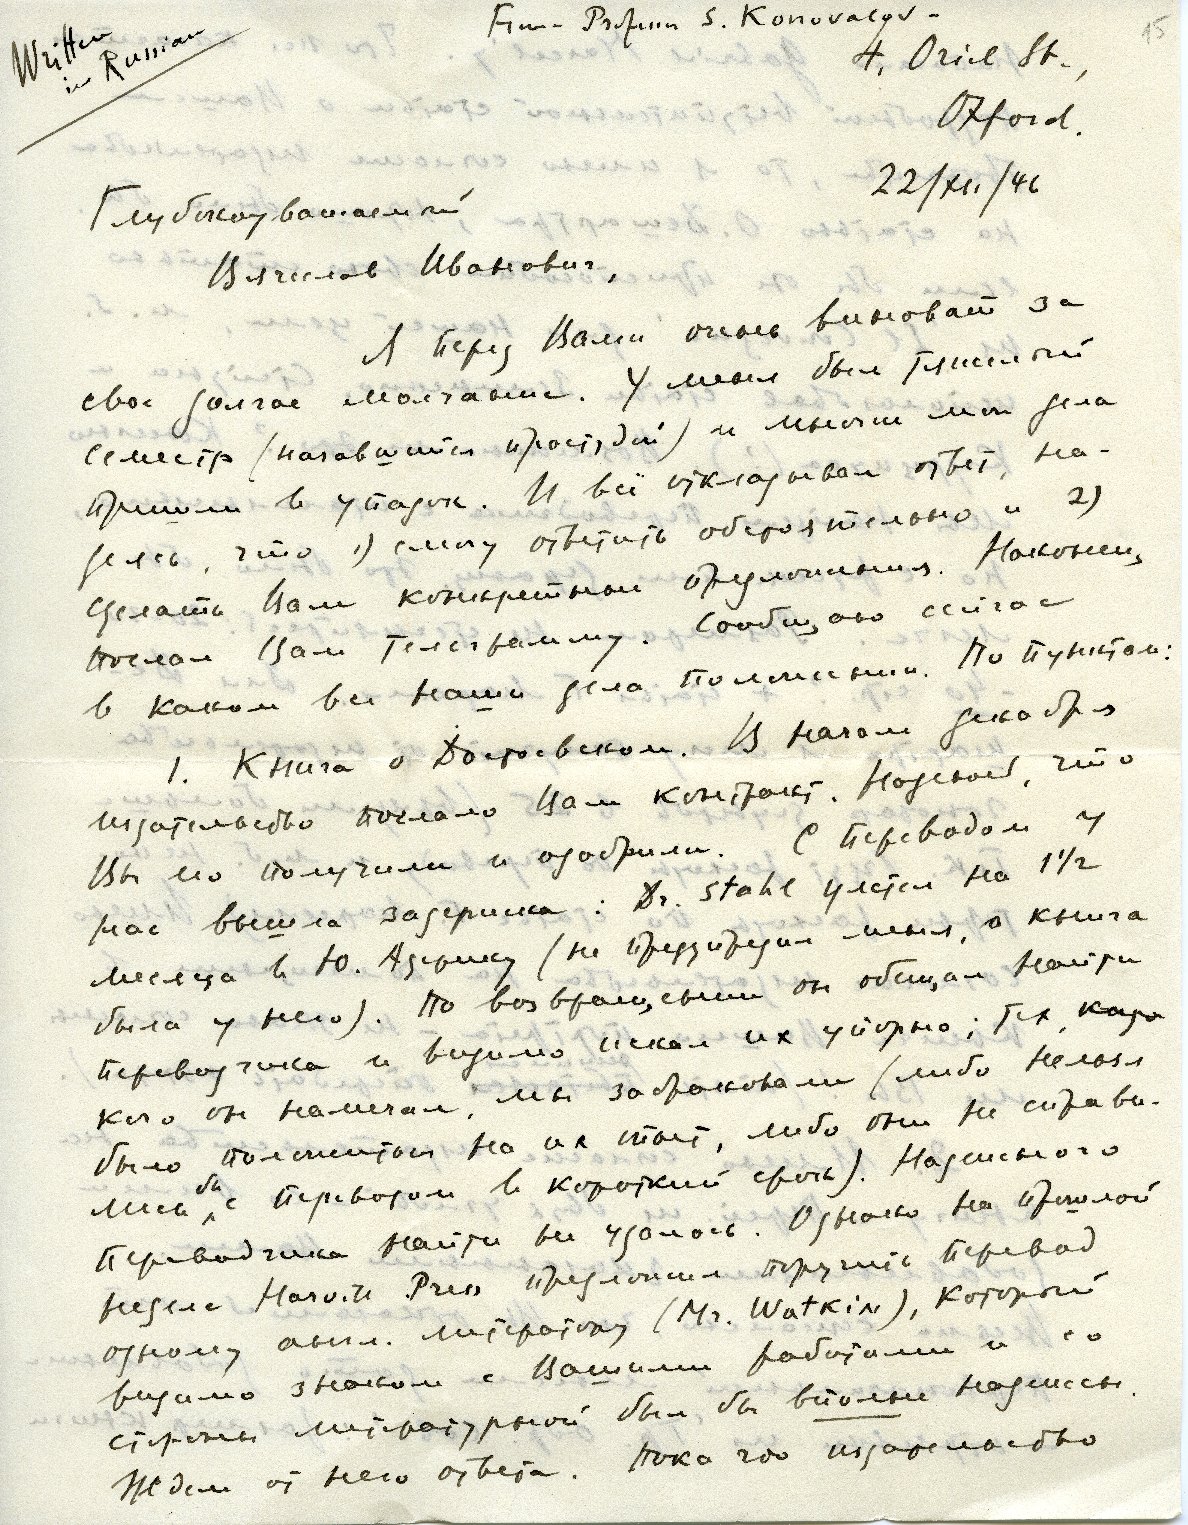 15
Written
in Russian
From Professor S. Konovalov -
4, Oriel St.,
Oxford.
22/XII/46
Глубокоуважаемый
Вячеслав Иванович,
Я перед Вами очень виноват за
свое долгое молчание. У меня был тяжелый
семестр (начавшийся простудой) и многие мои дела
пришли в упадок. И всё откладывал ответ, на-
деясь, что 1) смогу ответить обстоятельно и 2)
сделать Вам конкретные предложения. Наконец,
послал Вам телеграмму. Сообщаю сейчас
в каком все наши дела положении. По пунктам:
1. Книга о Достоевском. В начале декабря
издательство послало Вам контракт. Надеюсь, что
Вы его получили и одобрили. С переводом у
нас вышла задержка: Dr. Stahl улетел на 1 1/2
месяца в Ю. Африку (не предупредил меня, а книга
была у него). По возвращении он обещал найти
переводчика и видимо искал их упорно; тех,
кого он намечал, мы забраковали (либо нельзя
было положиться на их опыт, либо они не справи-
лись бы с переводом в короткий срок). Надежного
переводчика найти не удалось. Однако на прошлой
неделе Harvill Press предложил поручить перевод
одному англ. литератору (Mr. Watkin), который
видимо знаком с Вашими работами и со
стороны литературной был бы вполне надежен.
Ждем от него ответа. Пока что издательство